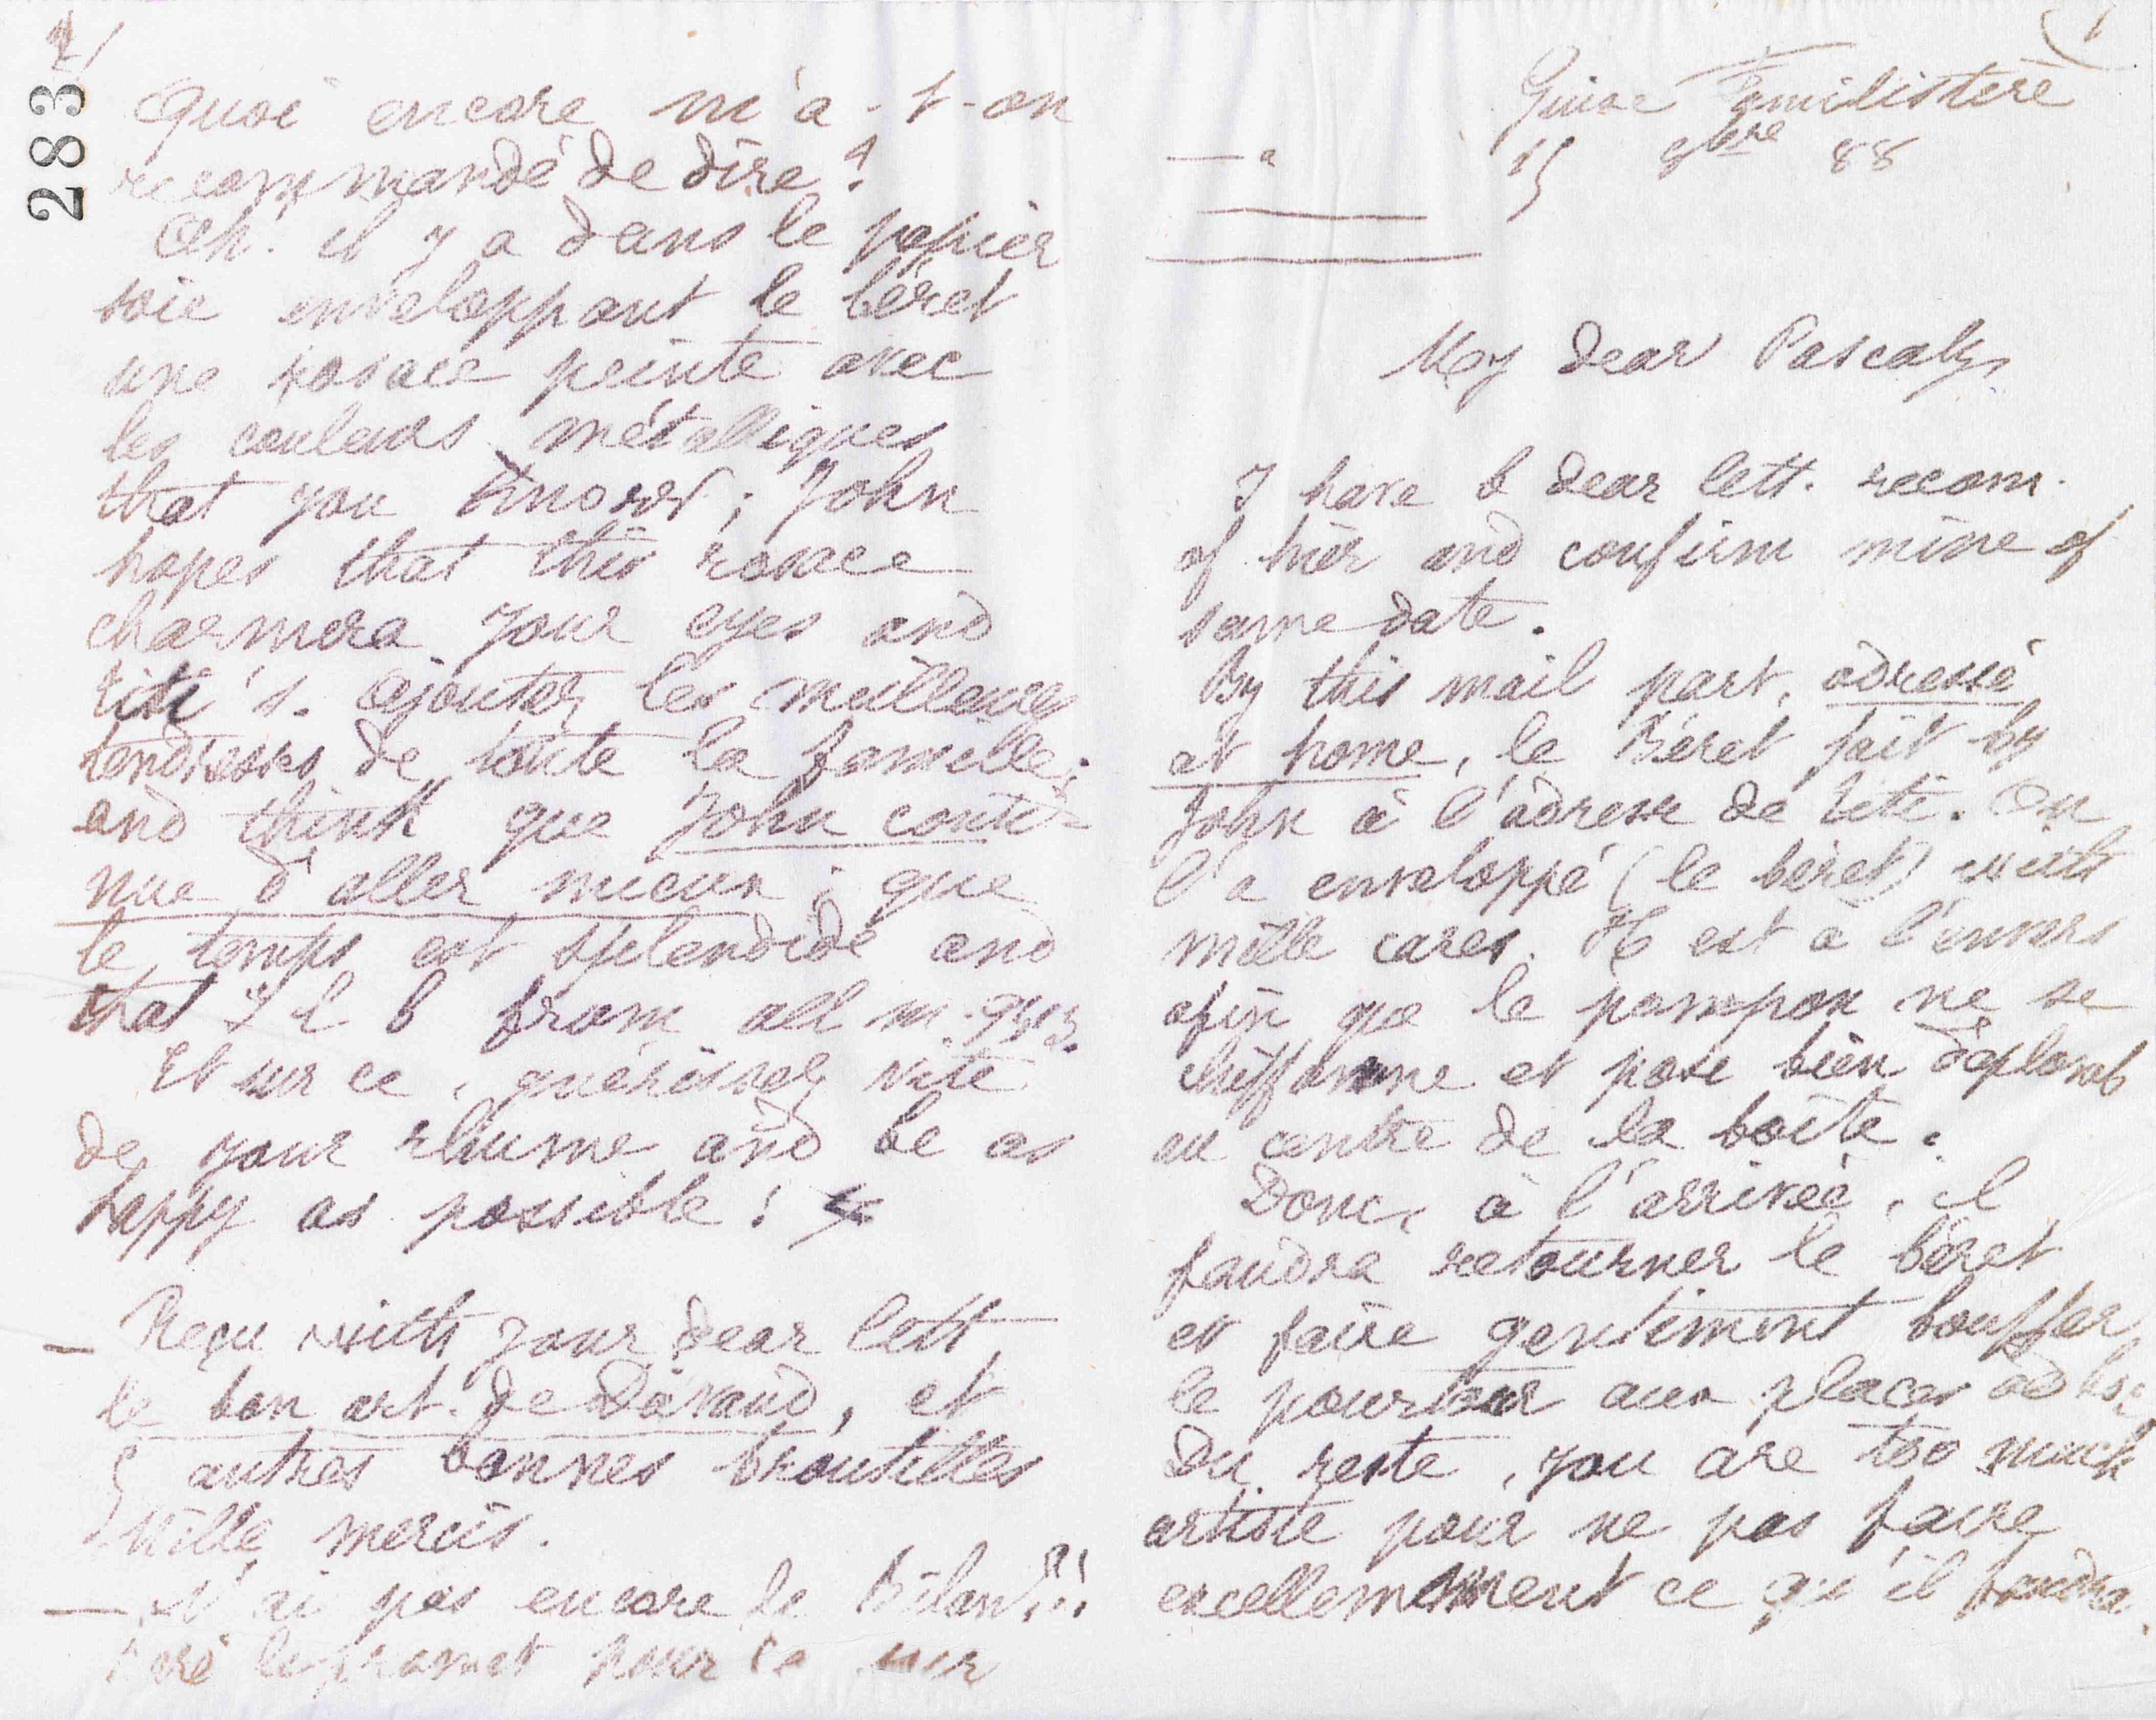 Guise Familistère
15 8bre 88
My dear Pascaly,
I have b dear lett. recom.
of hier and confirm mine of
same date.
By this mail part, adressé
at home, le Béret fait by
John à l'adresse de titi. On
l'a enveloppé (le béret) with
mille cares. Il est à l'envers
afin que le pompon ne se
chiffonne et pose bien
au centre de la boîte.
Donc, à l'arrivée, il
faudra retourner le béret
et faire gentiment bouffer
le pourtour aux places ad hoc.
Du reste, you are too much
artiste pour ne pas faire
excellemment ce qu'il faudra.
2832
Quoi encore m'a-t-on
recommandé de dire?
Ah! il y a dans le papier
soie enveloppant le béret
une rosace peinte avec
les couleurs métalliques
that you know; John
hopes that this rosace
charmera your eyes and
titi's. Ajoutez les meilleures
tendresses de toute la famille;
and think que John conti-
nue d'aller mieux; que
le temps est splendide and
that I b from all m.
Et sur ce, guérissez vite
de your rhume and be as
happy as possible!
— Reçu with your dear lett.
le bon art. de Dovaud, et
5 autres bonnes broutilles
Mille mercis.
— N'ai pas encore le Bilan?!!
le promet pour ce